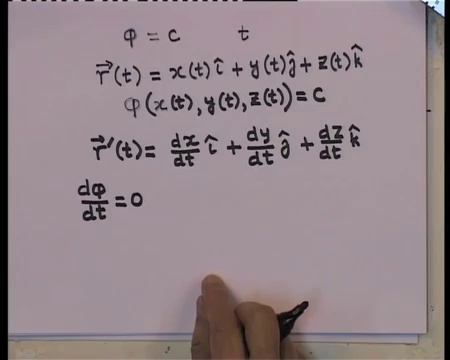 φ = c t
r⃗(t) = x(t) î + y(t) ĵ + z(t) k̂
φ(x(t), y(t), z(t)) = c
r⃗'(t) = dx/dt î + dy/dt ĵ + dz/dt k̂
dφ/dt = 0